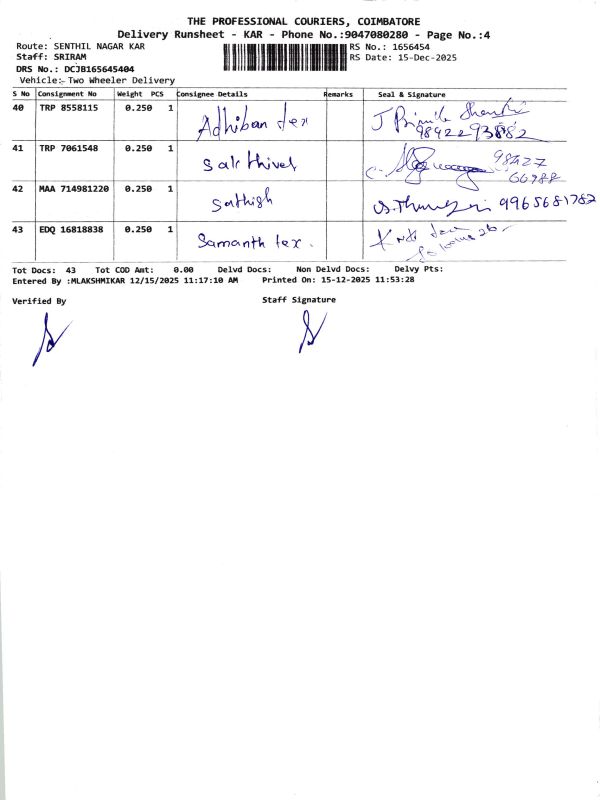 THE PROFESSIONAL COURIERS, COIMBATORE
Delivery Runsheet - KAR - Phone No.:9047080280 - Page No.:4
Route: SENTHIL NAGAR KAR RS No.: 1656454
Staff: SRIRAM RS Date: 15-Dec-2025
DRS No.: DCJB165645404
Vehicle:- Two Wheeler Delivery
S No Consignment No Weight PCS Consignee Details Remarks Seal & Signature
40 TRP 8558115 0.250 1 Adhiban tex J
9842293882
41 TRP 7061548 0.250 1 Sakthivel 98427
66988
42 MAA 714981220 0.250 1 Sathish 9965681782
43 EDQ 16818838 0.250 1 Samanth tex.
Tot Docs: 43 Tot COD Amt: 0.00 Delvd Docs: Non Delvd Docs: Delvy Pts:
Entered By :MLAKSHMIKAR 12/15/2025 11:17:10 AM Printed On: 15-12-2025 11:53:28
Verified By Staff Signature